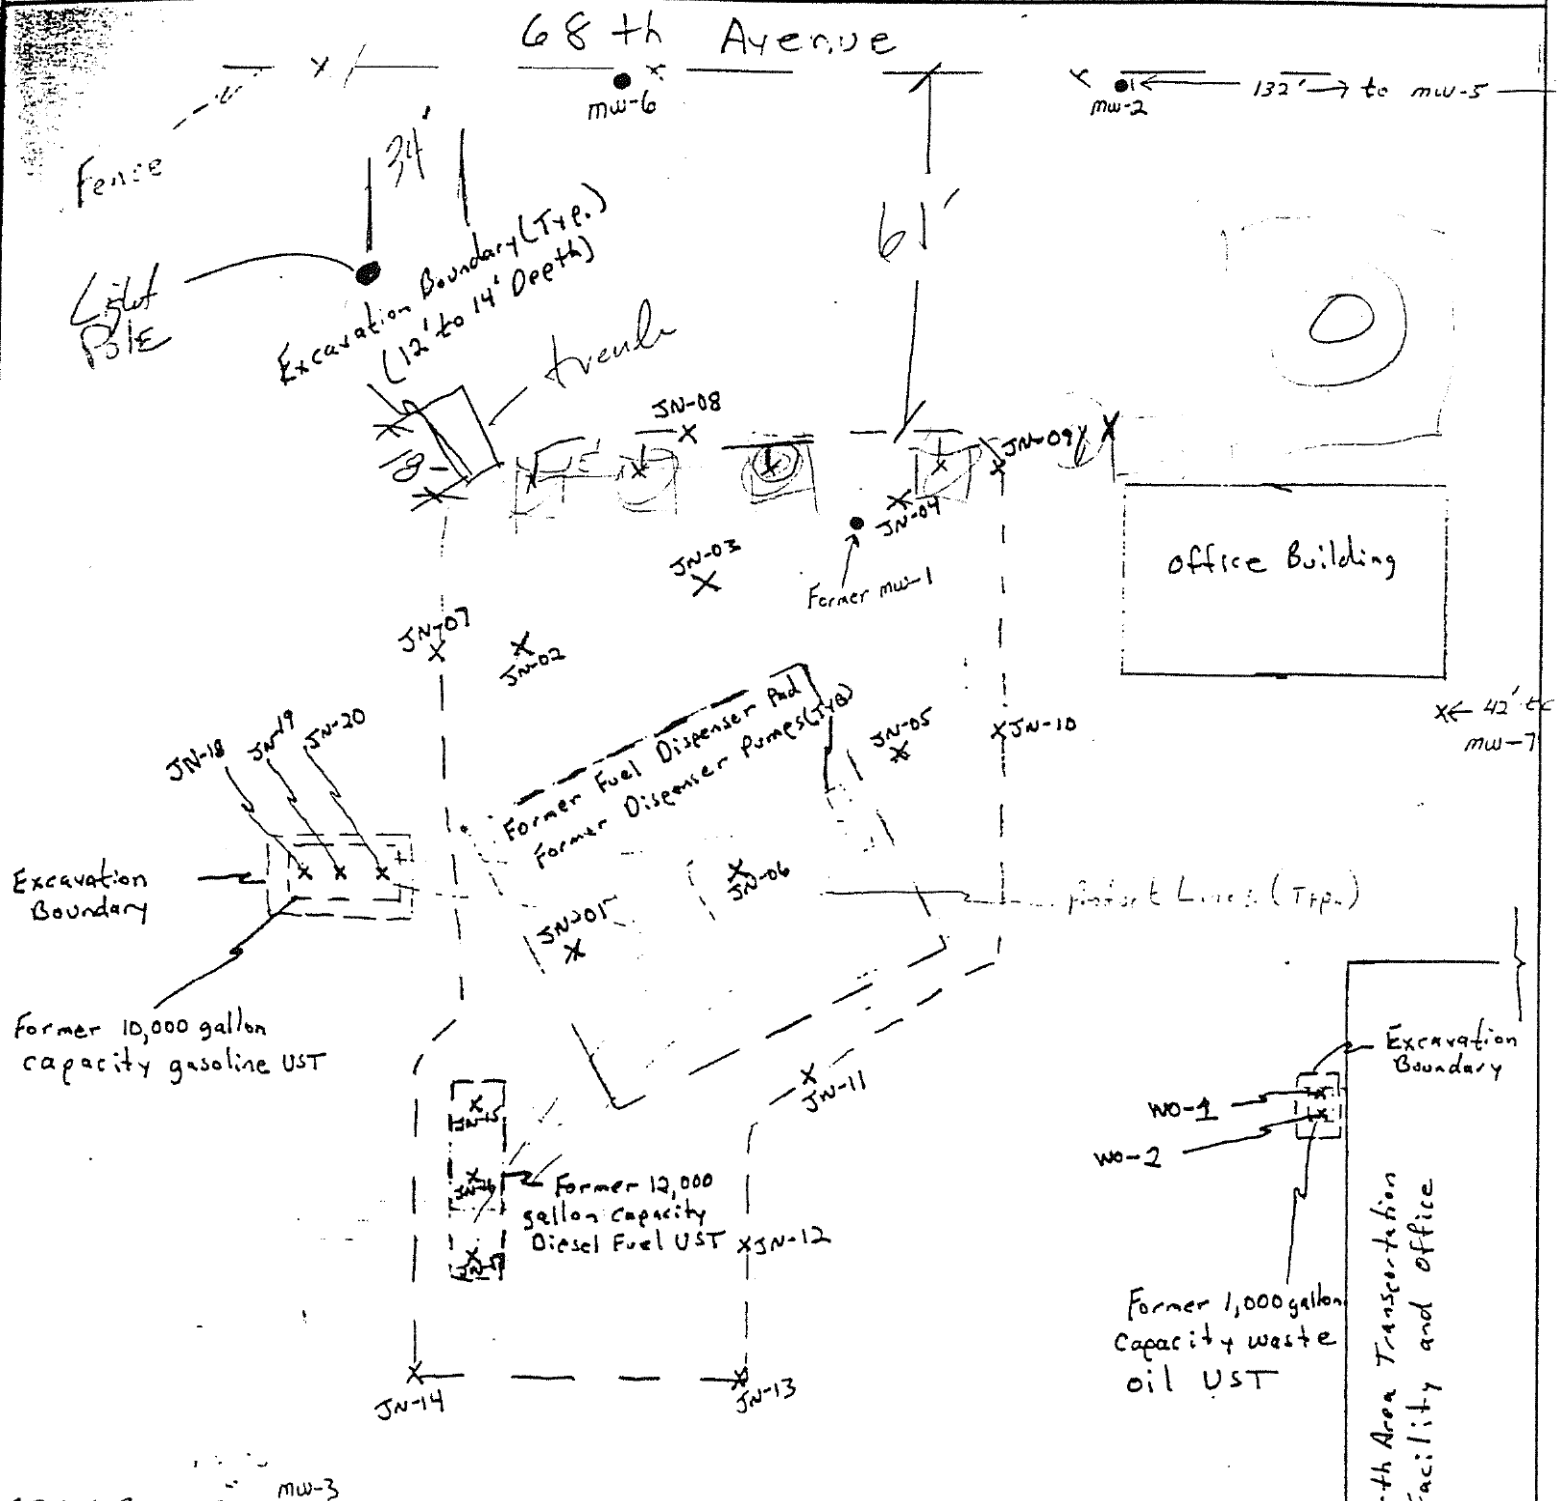 68th Avenue
Fence
mw-6
mw-2
132' to mw-5
34'
61'
Light
Pole
Excavation Boundary (Typ.)
(12' to 14' Depth)
trench
18'
JN-08
JN-09
JN-04
JN-03
Former mw-1
Office Building
JN-07
JN-02
42' to
mw-7
JN-18
JN-19
JN-20
Former Fuel Dispenser Pad
Former Dispenser Pumps (Typ)
JN-05
JN-10
Excavation
Boundary
JN-06
JN-01
Lines (Typ.)
Former 10,000 gallon
capacity gasoline UST
Excavation
Boundary
JN-11
WO-1
WO-2
JN-15
JN-16
JN-17
Former 12,000
gallon capacity
Diesel Fuel UST
JN-12
Former 1,000 gallon
Capacity waste
oil UST
th Area Transportation
Facility and Office
JN-14
JN-13
mw-3